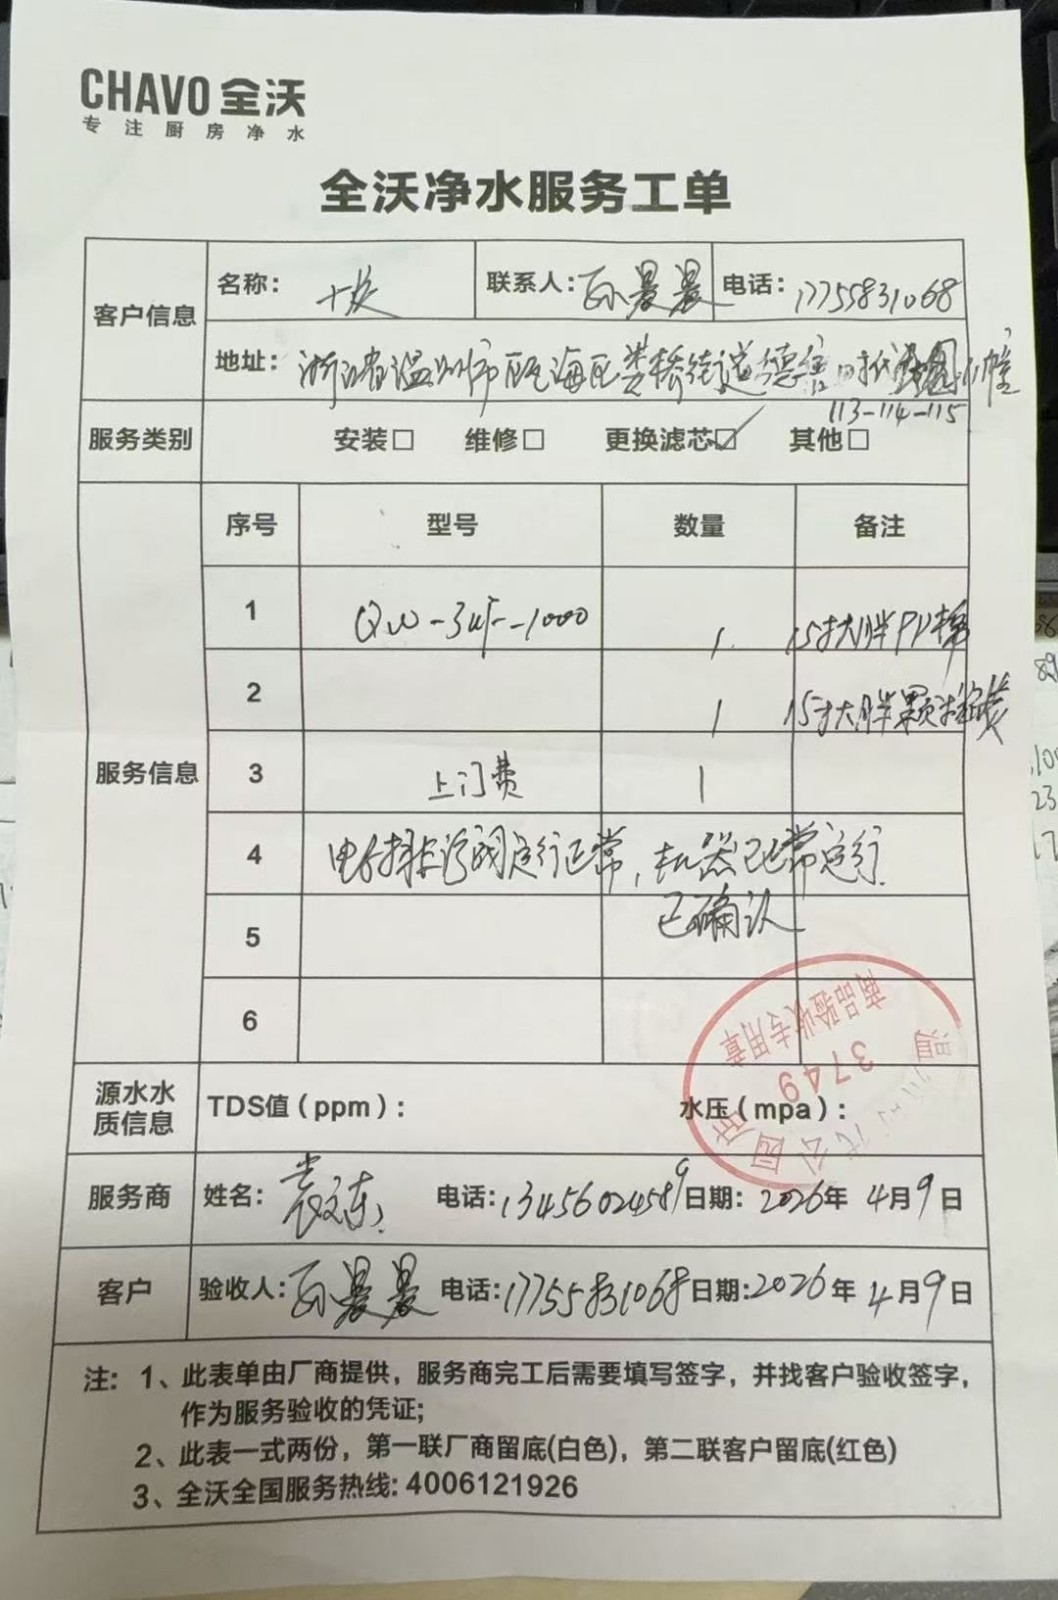 CHAVO 全沃
专注厨房净水
全沃净水服务工单
客户信息
名称： 联系人：孙晨晨 电话：17755831068
地址：浙江省温州市瓯海区娄桥街道德信时代公园1幢
113-114-115
服务类别 安装□ 维修□ 更换滤芯☑ 其他□
服务信息
序号 型号 数量 备注
1 QW-3UF-1000 1 15寸大胖PP棉
2 1 15寸大胖颗粒炭
3 上门费 1
4 电子排污阀运行正常，机器已正常运行
已确认
5
6
商品验收专用章
3749
源水水质信息 TDS值（ppm）： 水压（mpa）：
服务商 姓名： 电话：13456024589 日期：2026年4月9日
客户 验收人：孙晨晨 电话：17755831068 日期：2026年4月9日
注：1、此表单由厂商提供，服务商完工后需要填写签字，并找客户验收签字，
作为服务验收的凭证；
2、此表一式两份，第一联厂商留底(白色)，第二联客户留底(红色)
3、全沃全国服务热线：4006121926